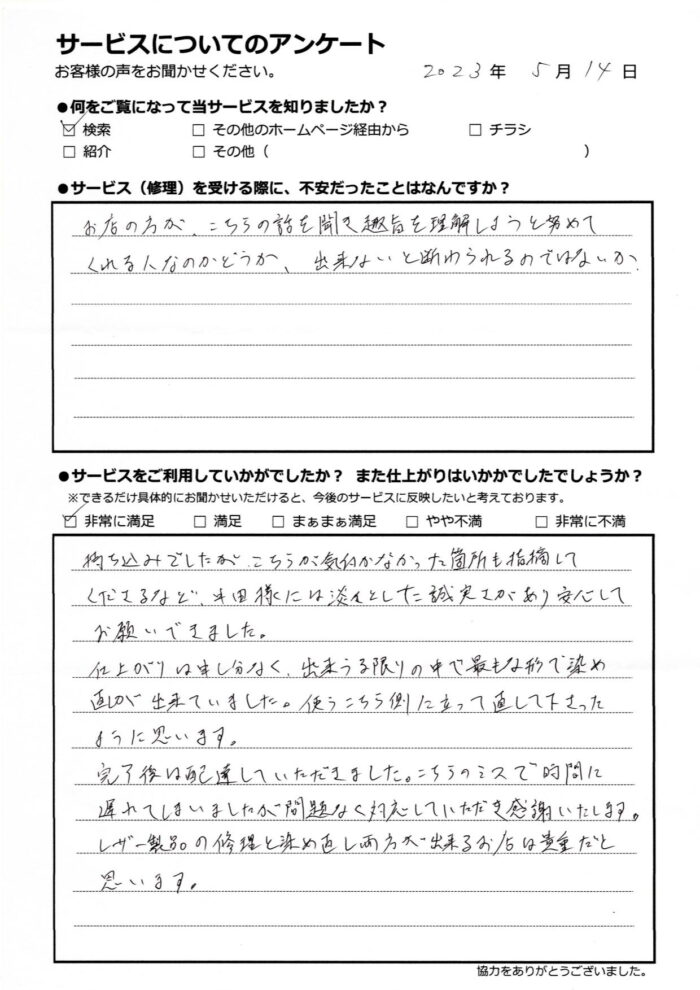 サービスについてのアンケート
お客様の声をお聞かせください。 2023年 5月 14日
●何をご覧になって当サービスを知りましたか？
☑ 検索 □ その他のホームページ経由から □ チラシ
□ 紹介 □ その他（ ）
●サービス（修理）を受ける際に、不安だったことはなんですか？
お店の方が、こちらの話を聞き趣旨を理解しようと努めて
くれる人なのかどうか、出来ないと断わられるのではないか、
●サービスをご利用していかがでしたか？ また仕上がりはいかかでしたでしょうか？
※できるだけ具体的にお聞かせいただけると、今後のサービスに反映したいと考えております。
☑ 非常に満足 □ 満足 □ まぁまぁ満足 □ やや不満 □ 非常に不満
持ち込みでしたが、こちらが気付かなかった箇所も指摘して
くださるなど、半田様には淡々とした誠実さがあり安心して
お願いできました。
仕上がりは申し分なく、出来うる限りの中で最もな形で染め
直しが出来ていました。使うこちら側に立って直して下さった
ように思います。
完了後は配達していただきました。こちらのミスで時間に
遅れてしまいましたが問題なく対応していただき感謝いたします。
レザー製品の修理と染め直し両方が出来るお店は貴重だと
思います。
協力をありがとうございました。